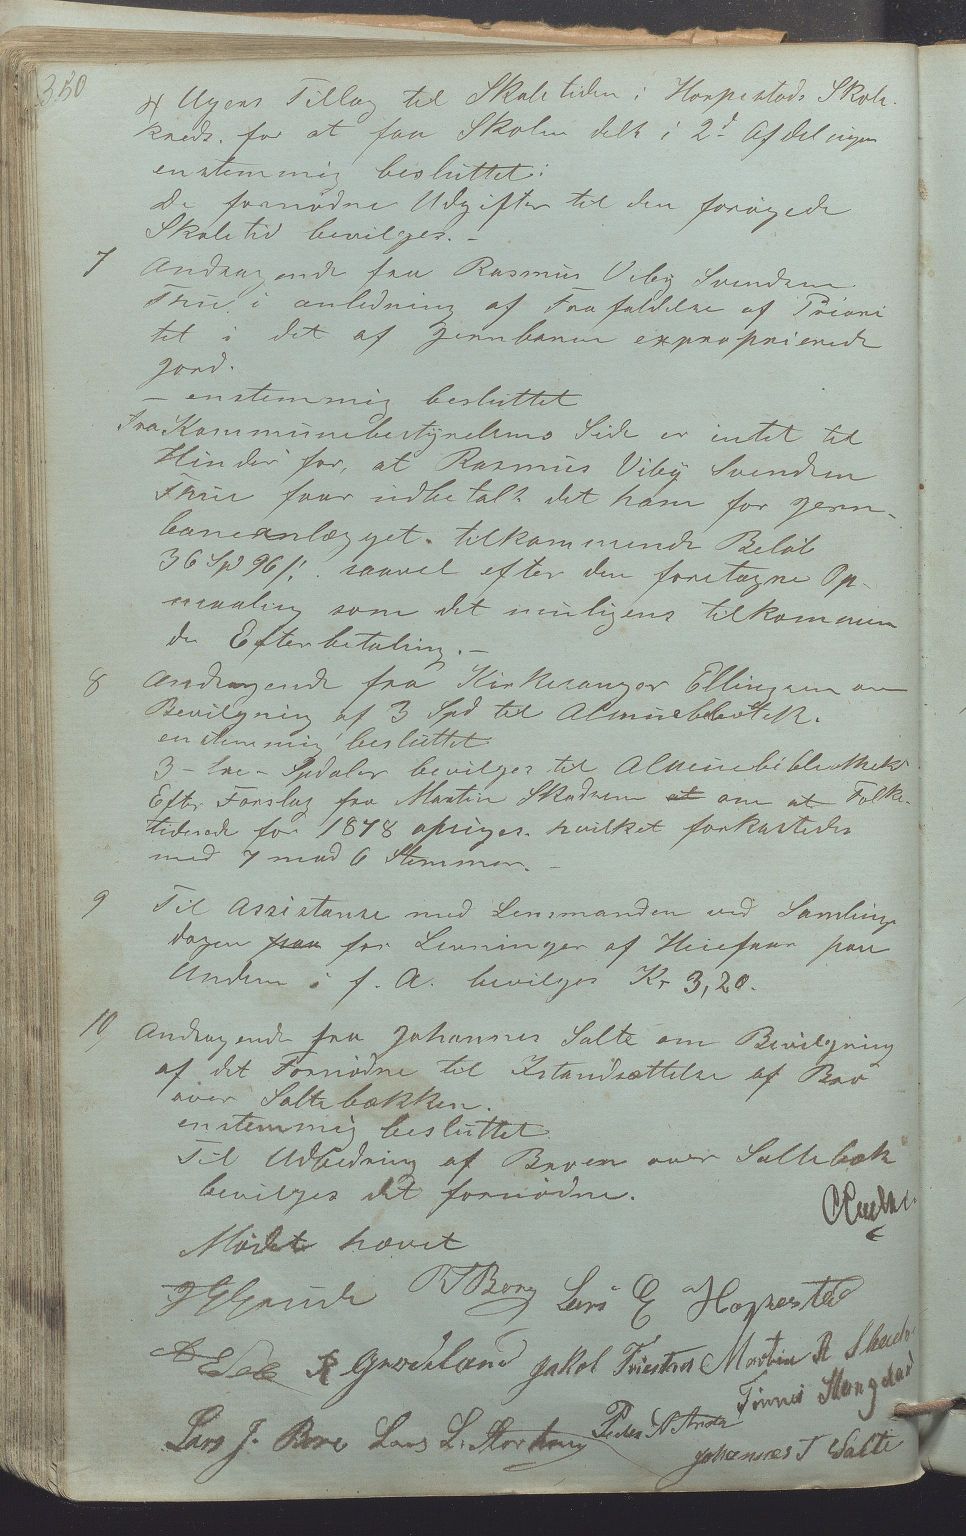 350
4 Ugers Tillæg til Skoletiden i Horpestads Skole-
kreds for at faa Skolen delt i 2d Afdelinger
enstemmig besluttet:
De fornødne Udgifter til den forøgede
Skoletid bevilges. –
7 Andragende fra Rasmus Viby Svendsen
Thu i anledning af Frafaldelse af Priori
tet i det af Jernbanen exproprierede
Jord.
– enstemmig besluttet
Fra Kommunebestyrelsens Side er intet til
Hinder for, at Rasmus Viby Svendsen
Thu faar udbetalt det ham for Jern-
baneanlægget tilkommende Beløb
36 Spd 96 s. saavel efter den foretagne Op-
maaling som det muligens tilkommen
de Efterbetaling. –
8 Andragende fra Kirkesanger Ellingsen om
Bevilgning af 3 Spd til Almuebibliotek.
enstemmig besluttet
3 – tre – Spdaler bevilges til Almuebibliothek
Efter Forslag fra Martin Skadsem at om at Folke-
tidende for 1878 opsiges. hvilket forkastedes
med 7 mod 6 Stemmer. –
9 Til Assistanse med Lensmanden ved Samlings
dagen paa for Levninger af Heiefaar paa
Undem i f. A. bevilges Kr 3,20.
10 Andragende fra Johannes Salte om Bevilgning
af det Fornødne til Istandsættelse af Bro
over Saltebækken.
enstemmig besluttet
Til Udbedring af Broen over Saltebæk
bevilges det fornødne.
Mødet hævet
R T Bore Lars E Horpestad
Grødeland Jakob Friestad Martin A Skads
Tønnes Stangeland
Lars J. Bore Lars L. Storhoug Peder N Anda
Johannes T Salte